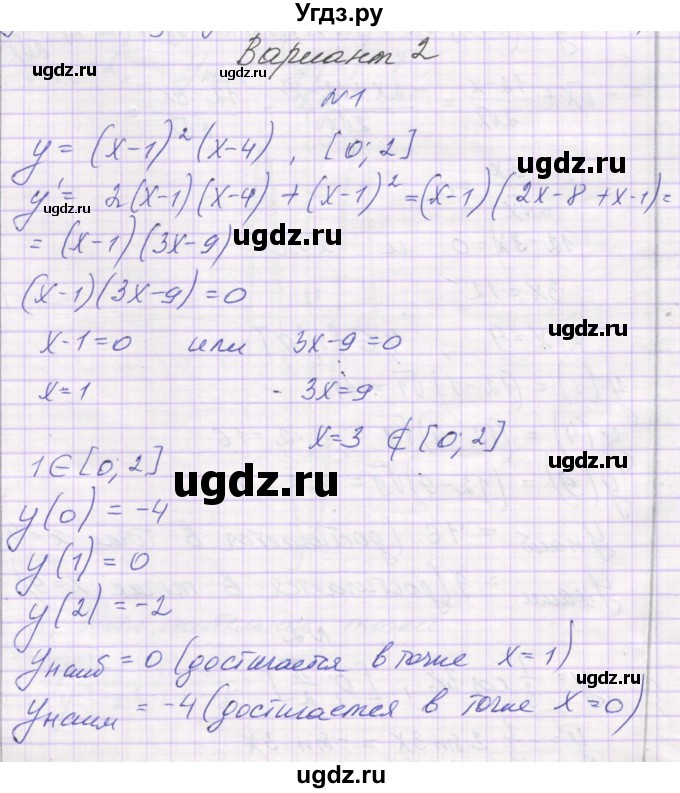 Угдз.ру
Вариант 2
ugdz.ru
ugdz.ru
N1
y = (x-1)² (x-4), [0; 2]
ugdz.ru
y' = 2(x-1)(x-4) + (x-1)² = (x-1)(2x-8+x-1) =
ugdz.ru
= (x-1)(3x-9)
ugdz.ru
(x-1)(3x-9) = 0
ugdz.ru
x-1=0 или 3x-9=0
x=1 3x=9
x=3 ∉ [0; 2]
1 ∈ [0; 2]
ugdz.ru
y(0) = -4
y(1) = 0
ugdz.ru
y(2) = -2
yнаиб = 0 (достигается в точке x=1)
ugdz.ru
yнаим = -4 (достигается в точке x=0)
ugdz.ru
ugdz.ru